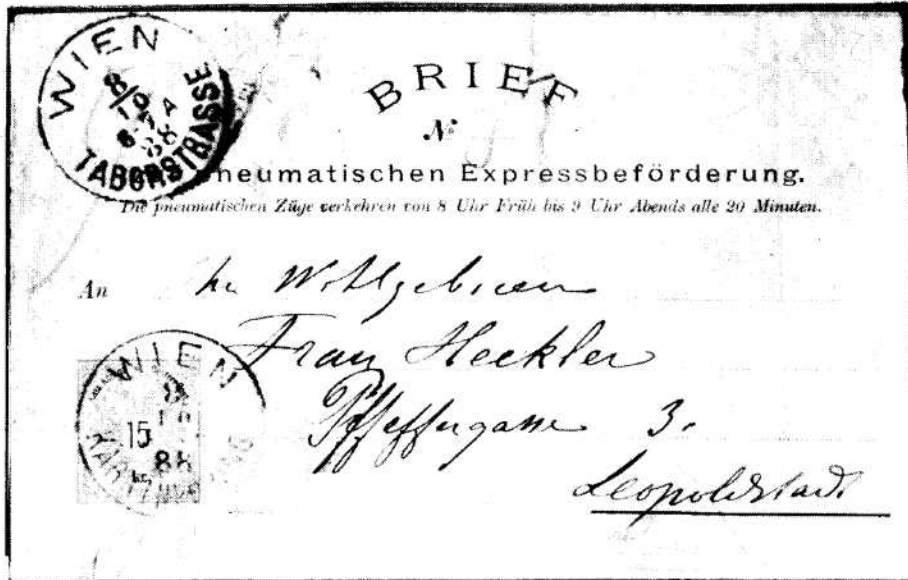 WIEN
8/10
88
TABORSTRASSE
BRIEF
№
pneumatischen Expressbeförderung.
Die pneumatischen Züge verkehren von 8 Uhr Früh bis 9 Uhr Abends alle 20 Minuten.
An Wohlgeboren
Frau Heckler
Pfeffergasse 3.
WIEN
8
15
kr.
88
Leopoldstadt